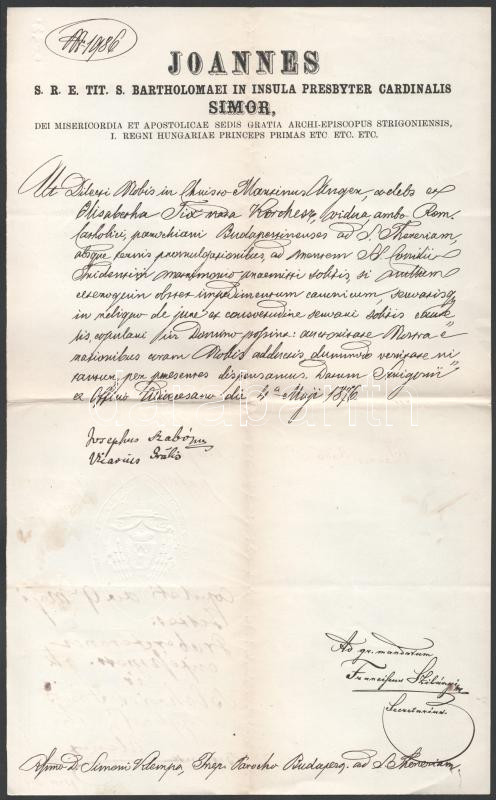 Nr. 1986
JOANNES
S. R. E. TIT. S. BARTHOLOMAEI IN INSULA PRESBYTER CARDINALIS
SIMOR,
DEI MISERICORDIA ET APOSTOLICAE SEDIS GRATIA ARCHI-EPISCOPUS STRIGONIENSIS,
I. REGNI HUNGARIAE PRINCEPS PRIMAS ETC. ETC. ETC.
Ut Dilecti Nobis in Christo Martinus Unger, coelebs et
Elisabetha nata vidua, ambo Rom.
Catholici, parochiani Budapestinenses ad S. Theresiam,
absque ternis promulgationibus, ad mentem S. Concilii
Tridentini matrimonio praemitti solitis, si nullum
ceteroquin obstet impedimentum canonicum, servatis
in reliquo de jure et consuetudine servari solitis
copulari in Domino possint: auctoritate Nostra e
rationibus coram Nobis adductis dummodo veritate ni
tantur, per praesentes dispensamus. Datum Strigonii
ex Officio Dioecesano die 4a Maji 1876.
Josephus Szabó
Vicarius Grālis
Ad gr. mandatum
Franciscus
Secretarius.
Rssmo D. Simoni Klempa, Parocho Budapest. ad S. Theresiam.